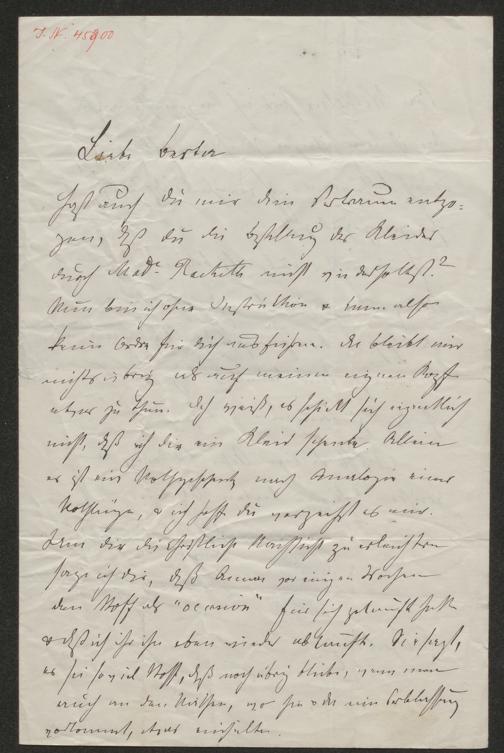 I. N. 45900
Liebe Bertha
Hast auch du mir dein Vertrauen entzo-
gen, daß du die Bestellung der Kleider
durch Made. Rachette nicht wiederholtest?
Nun bin ich ohne Instruktion & kann also
keine Ordre für dich ausführen. Es bleibt mir
nichts übrig als auf meinen eignen Kopf
etwas zu thun. Ich weiß, es schickt sich eigentlich
nicht, daß ich dir ein Kleid schenke. Allein
es ist ein Nothgeschenk nach Analogie einer
Nothlüge, & ich hoffe du verzeihst es mir.
Um dir die christliche Nachsicht zu erleichtern
sage ich dir, daß Anna vor einigen Wochen
den Stoff als "occasion" für sich gekauft hatte
& daß ich ihr ihn eben wieder abkaufte. Sie sagt,
es sei so viel Stoff, daß noch übrig bleibe, wenn man
auch an den Näthen, wo hie & da eine
vorkommt, etwas einhalte.